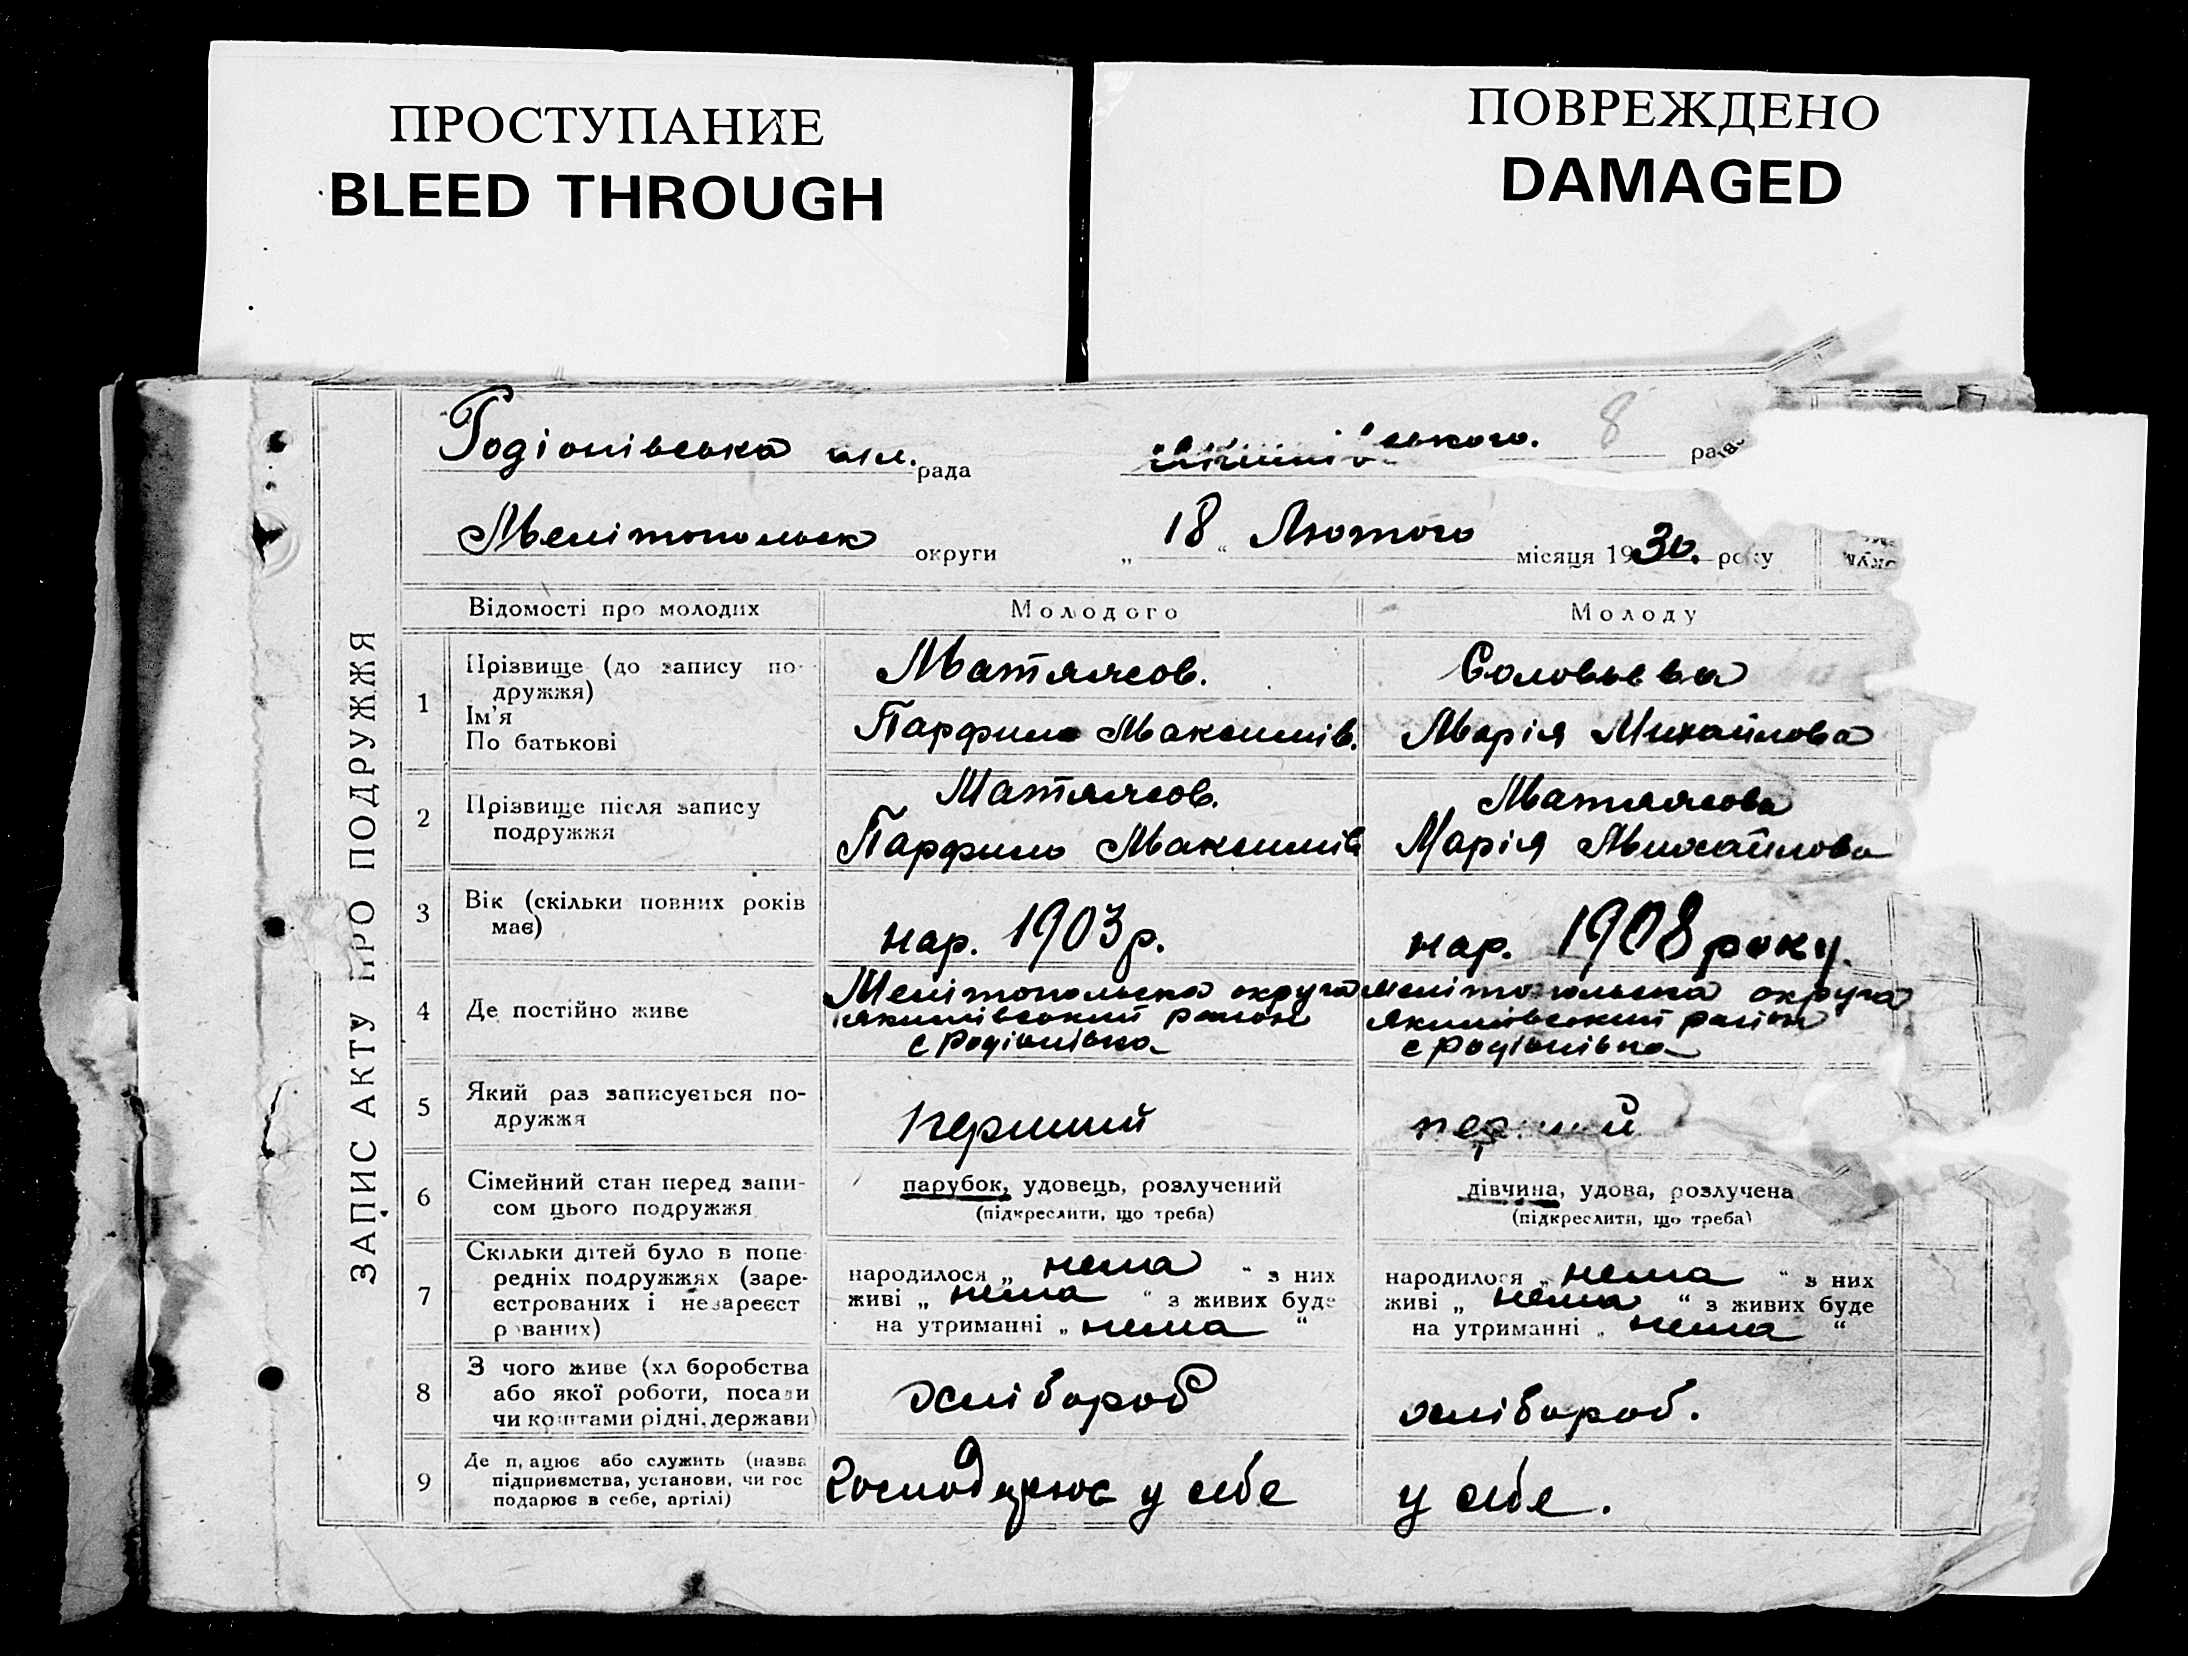 ПРОСТУПАНИЕ
BLEED THROUGH
ПОВРЕЖДЕНО
DAMAGED
ЗАПИС АКТУ ПРО ПОДРУЖЖЯ
Родіонівська рада
ського. 8
Мелітопольск округи
„ 18 “ Лютого місяця 1930. року
Відомості про молодих Молодого Молоду
1
Прізвище (до запису по-
дружжя)
Ім'я
По батькові
Соловьева
Парфило Максимів.
Марія Михайлова
2
Прізвище після запису
подружжя
Парфило Максимів
Марія Михайлова
3
Вік (скільки повних років
має)
нар. 1903 р.
нар. 1908 року.
4
Де постійно живе
Мелітопольска округа
Якимівський район
с Родіонівка
Мелітопольска округа
Якимівський район
с Родіонівка
5
Який раз записується по-
дружжя
перший
перший
6
Сімейний стан перед запи-
сом цього подружжя
парубок, удовець, розлучений
(підкреслити, що треба)
дівчина, удова, розлучена
(підкреслити, що треба)
7
Скільки дітей було в попе
редніх подружжях (заре-
єстрованих і незареєст
рованих)
народилося „ нема “ з них
живі „ нема “ з живих буде
на утриманні „ нема “
народилося „ нема “ з них
живі „ нема “ з живих буде
на утриманні „ нема “
8
З чого живе (хліборобства
або якої роботи, посади
чи коштами рідні, держави)
хлібороб
хлібороб.
9
Де працює або служить (назва
підприємства, установи, чи гос
подарює в себе, артілі)
Господарює у себе
у себе.